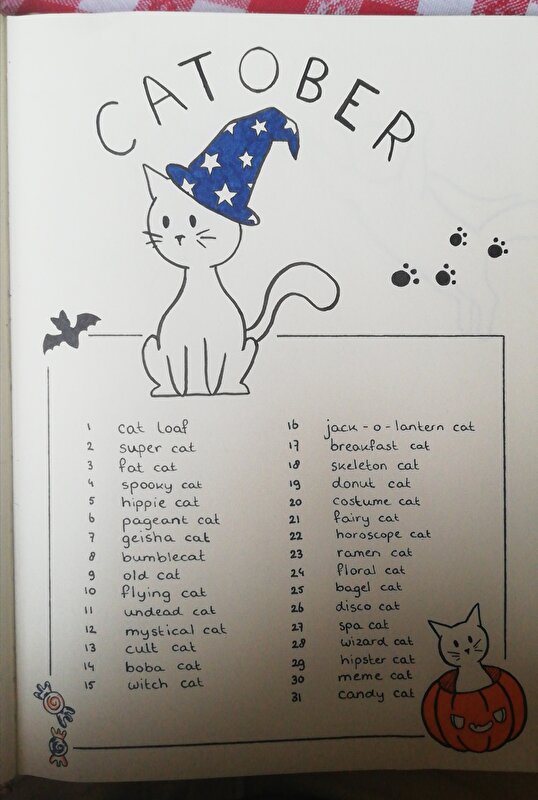 CATOBER
1 cat loaf
2 super cat
3 fat cat
4 spooky cat
5 hippie cat
6 pageant cat
7 geisha cat
8 bumblecat
9 old cat
10 flying cat
11 undead cat
12 mystical cat
13 cult cat
14 boba cat
15 witch cat
16 jack-o-lantern cat
17 breakfast cat
18 skeleton cat
19 donut cat
20 costume cat
21 fairy cat
22 horoscope cat
23 ramen cat
24 floral cat
25 bagel cat
26 disco cat
27 spa cat
28 wizard cat
29 hipster cat
30 meme cat
31 candy cat